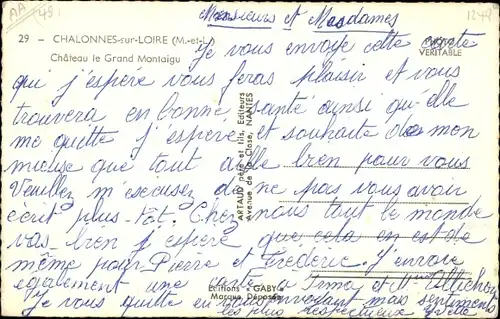 Messieurs et Mesdames
29 - CHALONNES-sur-LOIRE (M.-et-L.)
Château le Grand Montaigu
VÉRITABLE
Je vous envoye cette carte
qui j'espere vous feras plaisir et vous
trouvera en bonne santé ainsi qu'elle
me quitte j'espere et souhaite de mon
mieuse que tout aille bien pour vous
Veuillez m'escusez de ne pas vous avoir
écrit plus tôt. Chez nous tout le monde
vas bien j'espere que cela en est de
même pour Pierre et Frederic j'envoie
egalement une carte a Irma et
Je vous quitte en vous envoyant mes sentiments
les plus respectueux Yvette
ARTAUD père et fils, Editeurs
Avenue de la Close, NANTES
Editions "GABY"
Marque Déposée